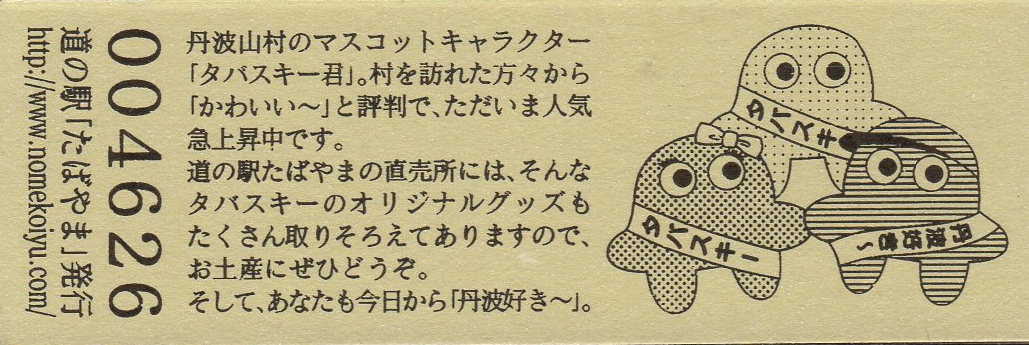 丹波山村のマスコットキャラクター
「タバスキー君」。村を訪れた方々から
「かわいい～」と評判で、ただいま人気
急上昇中です。
道の駅たばやまの直売所には、そんな
タバスキーのオリジナルグッズも
たくさん取りそろえてありますので、
お土産にぜひどうぞ。
そして、あなたも今日から「丹波好き～」。
004626
道の駅「たばやま」発行
http://www.nomekoiyu.com/
タバスキ
タバスキー
丹波好き～